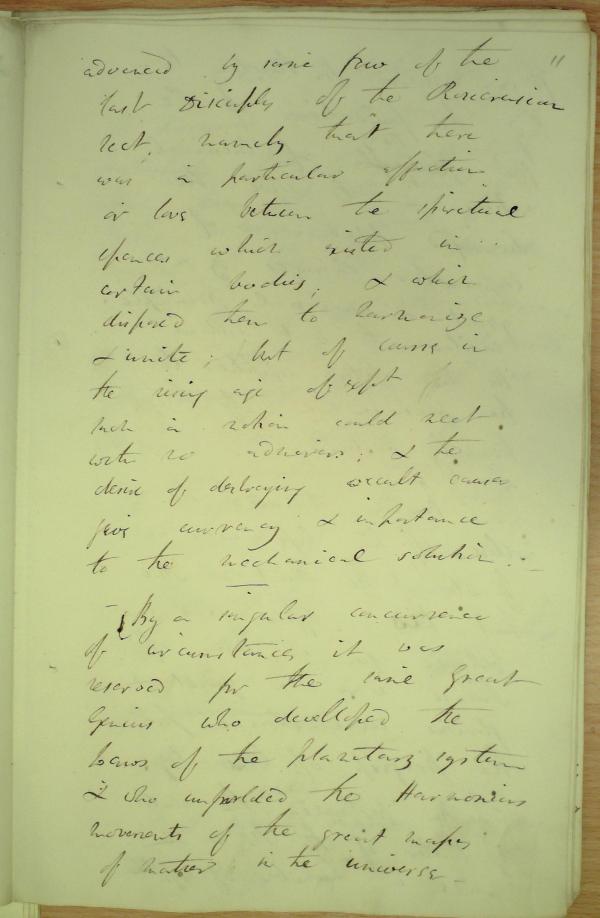 11
advanced by some few of the
last Disciples of the Rosicrusian
sect, namely that there
was a particular affection
or love between the spiritual
essences which existed in
certain bodies, & which
disposed them to harmonize
& unite; but of course in
the rising age of
such a notion could meet
with no admirers; & the
desire of destroying occult causes
gave currency & importance
to the mechanical solution. -
- By a singular concurrence
of circumstances it was
reserved for the same great
Genius who developed the
laws of the planetary system
& who unfolded the Harmonious
movements of the great masses
of matter in the universe -